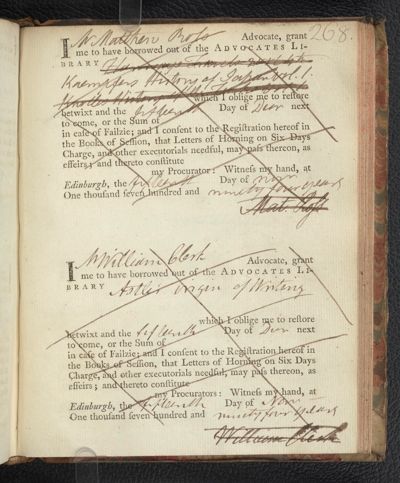 268.
I Mr Matthew Ross Advocate, grant
me to have borrowed out of the ADVOCATES LI-
BRARY
Kaempfers History of Japan vol. 1.
which I oblige me to reſtore
betwixt and the fifteenth Day of Decr next
to come, or the Sum of
in caſe of Failzie; and I conſent to the Regiſtration hereof in
the Books of Seſſion, that Letters of Horning on Six Days
Charge, and other executorials needful, may paſs thereon, as
effeirs; and thereto conſtitute
my Procurator: Witneſs my hand, at
Edinburgh, the fifteenth Day of Novr
One thouſand ſeven hundred and ninety four years
Mat. Roſs
I Mr William Clerk Advocate, grant
me to have borrowed out of the ADVOCATES LI-
BRARY Astle's origin of Writing
which I oblige me to reſtore
betwixt and the fifteenth Day of Decr next
to come, or the Sum of
in caſe of Failzie; and I conſent to the Regiſtration hereof in
the Books of Seſſion, that Letters of Horning on Six Days
Charge, and other executorials needful, may paſs thereon, as
effeirs; and thereto conſtitute
my Procurators: Witneſs my hand, at
Edinburgh, the fifteenth Day of Novr
One thouſand ſeven hundred and ninety four years
William Clerk